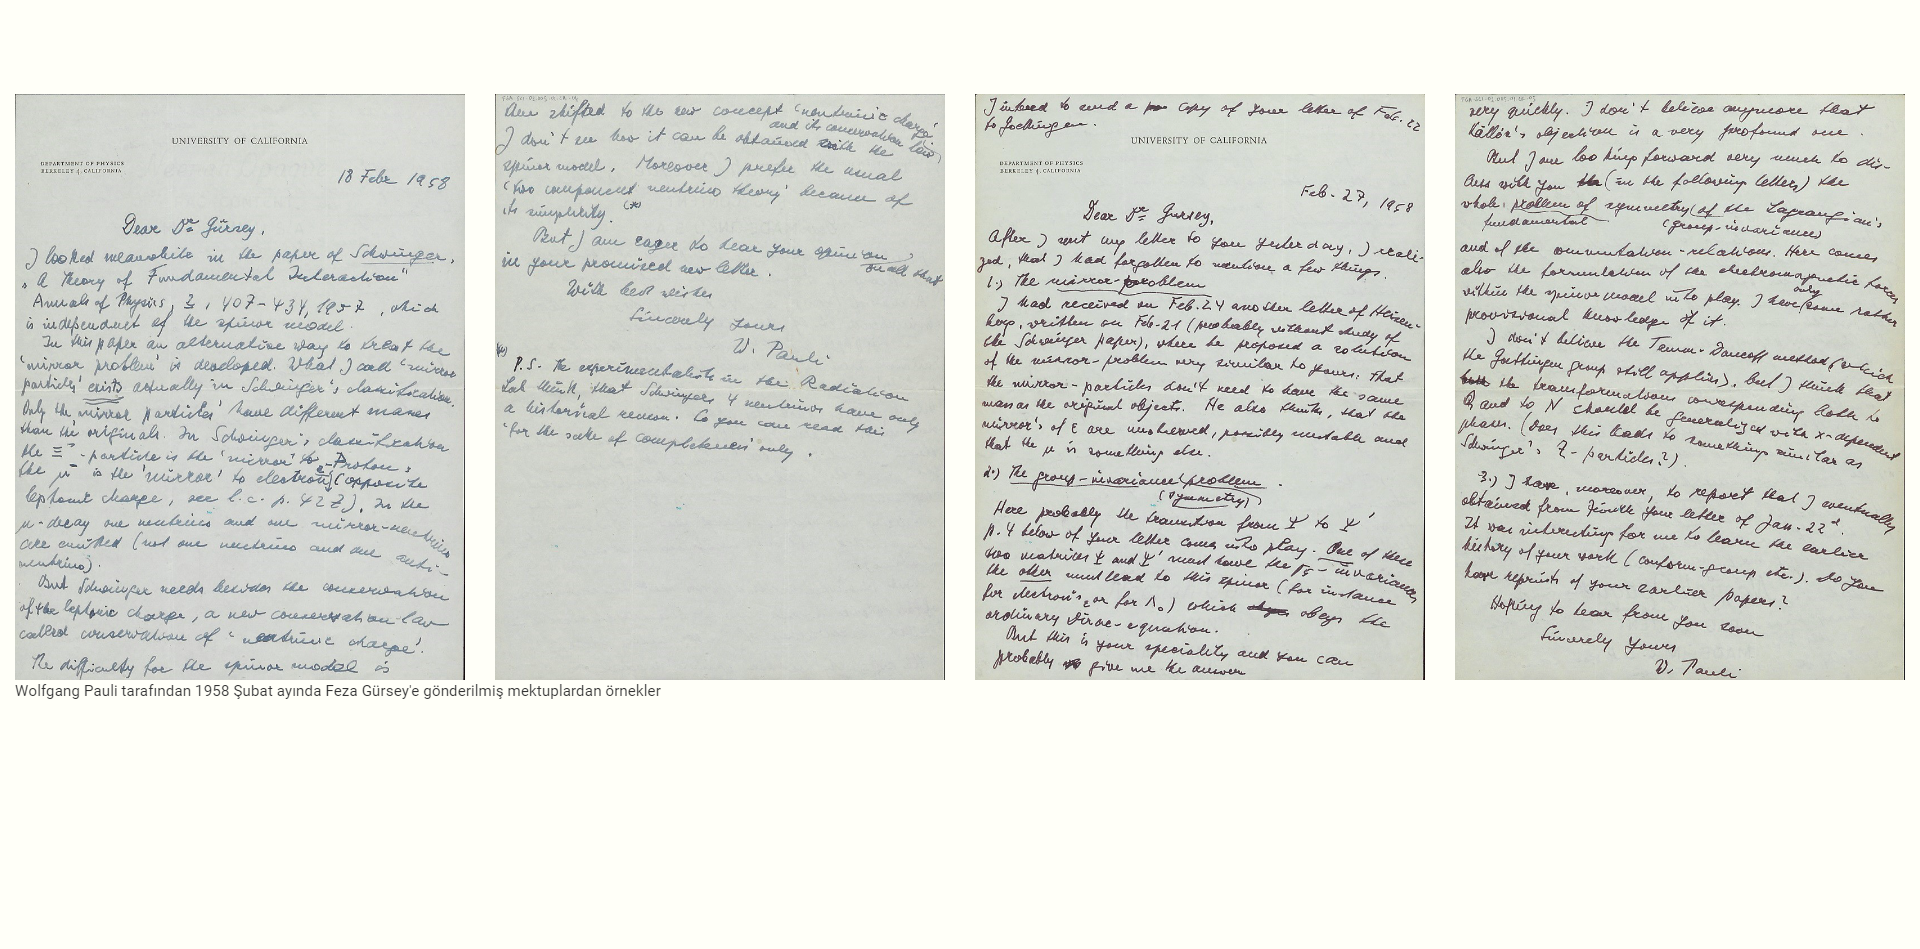 UNIVERSITY OF CALIFORNIA
DEPARTMENT OF PHYSICS
BERKELEY 4, CALIFORNIA
18 Febr 1958
Dear Dr Gürsey,
I looked meanwhile in the paper of Schwinger,
„A Theory of Fundamental Interaction"
Annals of Physics, 2, 407-434, 1957, which
is independent of the spinor model.
In this paper an alternative way to treat the
'mirror problem' is developed. What I call 'mirror
particles' exists actually in Schwinger's classification.
Only the 'mirror particles' have different masses
than the originals. In Schwinger's classification
the Ξ⁻-particle is the 'mirror' to Proton,
the μ⁻ is the 'mirror' to electron (opposite
leptonic charge, see l.c. p. 427). In the
μ-decay one neutrino and one mirror-neutrino
are emitted (not one neutrino and one anti-
neutrino).
But Schwinger needs besides the conservation
of the leptonic charge, a new conservation-law
called conservation of "neutrinic charge'.
The difficulty for the spinor model is
then shifted to the new concept 'neutrinic charge'
and its conservation law
I don't see how it can be obtained with the
spinor model. Moreover I prefer the usual
'two component neutrino theory' because of
its simplicity. (*)
But I am eager to hear your opinion
on all that
in your promised new letter.
With best wishes
Sincerely yours
W. Pauli
(*)
P.S. The experimentalists in the Radiation
Lab think, that Schwingers 4 neutrinos have only
a historical reason. So you can read this
'for the sake of completeness' only.
I intend to send a copy of your letter of Feb. 22
to Goettingen.
UNIVERSITY OF CALIFORNIA
DEPARTMENT OF PHYSICS
BERKELEY 4, CALIFORNIA
Feb. 27, 1958
Dear Dr Gursey,
After I sent my letter to you yesterday, I reali-
zed, that I had forgotten to mention a few things.
1.) The mirror-problem
I had received on Feb. 24 another letter of Heisen-
berg, written on Feb. 21 (probably without study of
the Schwinger paper), where he proposed a solution
of the mirror-problem very similar to yours: That
the mirror-particles don't need to have the same
mass as the original objects. He also thinks, that the
mirror's of ε are unobserved, possibly unstable and
that the μ is something else.
2.) The group-invariance problem.
(symmetry)
Here probably the transition from Ψ to Ψ'
p. 4 below of your letter comes into play. One of these
two matrices Ψ and Ψ' must have the γ5-invariance
the other must lead to this spinor (for instance
for electrons, or for Λ0) which obeys the
ordinary Dirac-equation.
But this is your speciality and you can
probably give me the answer
very quickly. I don't believe anymore that
Källén's objection is a very profound one.
But I am looking forward very much to dis-
cuss with you (in the following letters) the
whole problem of symmetry (of the Lagrangian's
fundamental (group-invariance)
and of the commutation-relations. Here comes
also the formulation of the electromagnetic forces
within the spinor model into play. I have only some rather
provisional knowledge of it.
I don't believe the Tamm-Dancoff method (which
the Goettingen group still applies), but I think that
the transformations corresponding both to
Q and to N should be generalized with x-dependent
phases. (Does this leads to something similar as
Schwinger's Z-particles?).
3.) I have, moreover, to report that I eventually
obtained from your letter of Jan. 22d.
It was interesting for me to learn the earlier
history of your work (conform-group etc.). Do you
have reprints of your earlier papers?
Hoping to hear from you soon
Sincerely yours
W. Pauli
Wolfgang Pauli tarafından 1958 Şubat ayında Feza Gürsey'e gönderilmiş mektuplardan örnekler